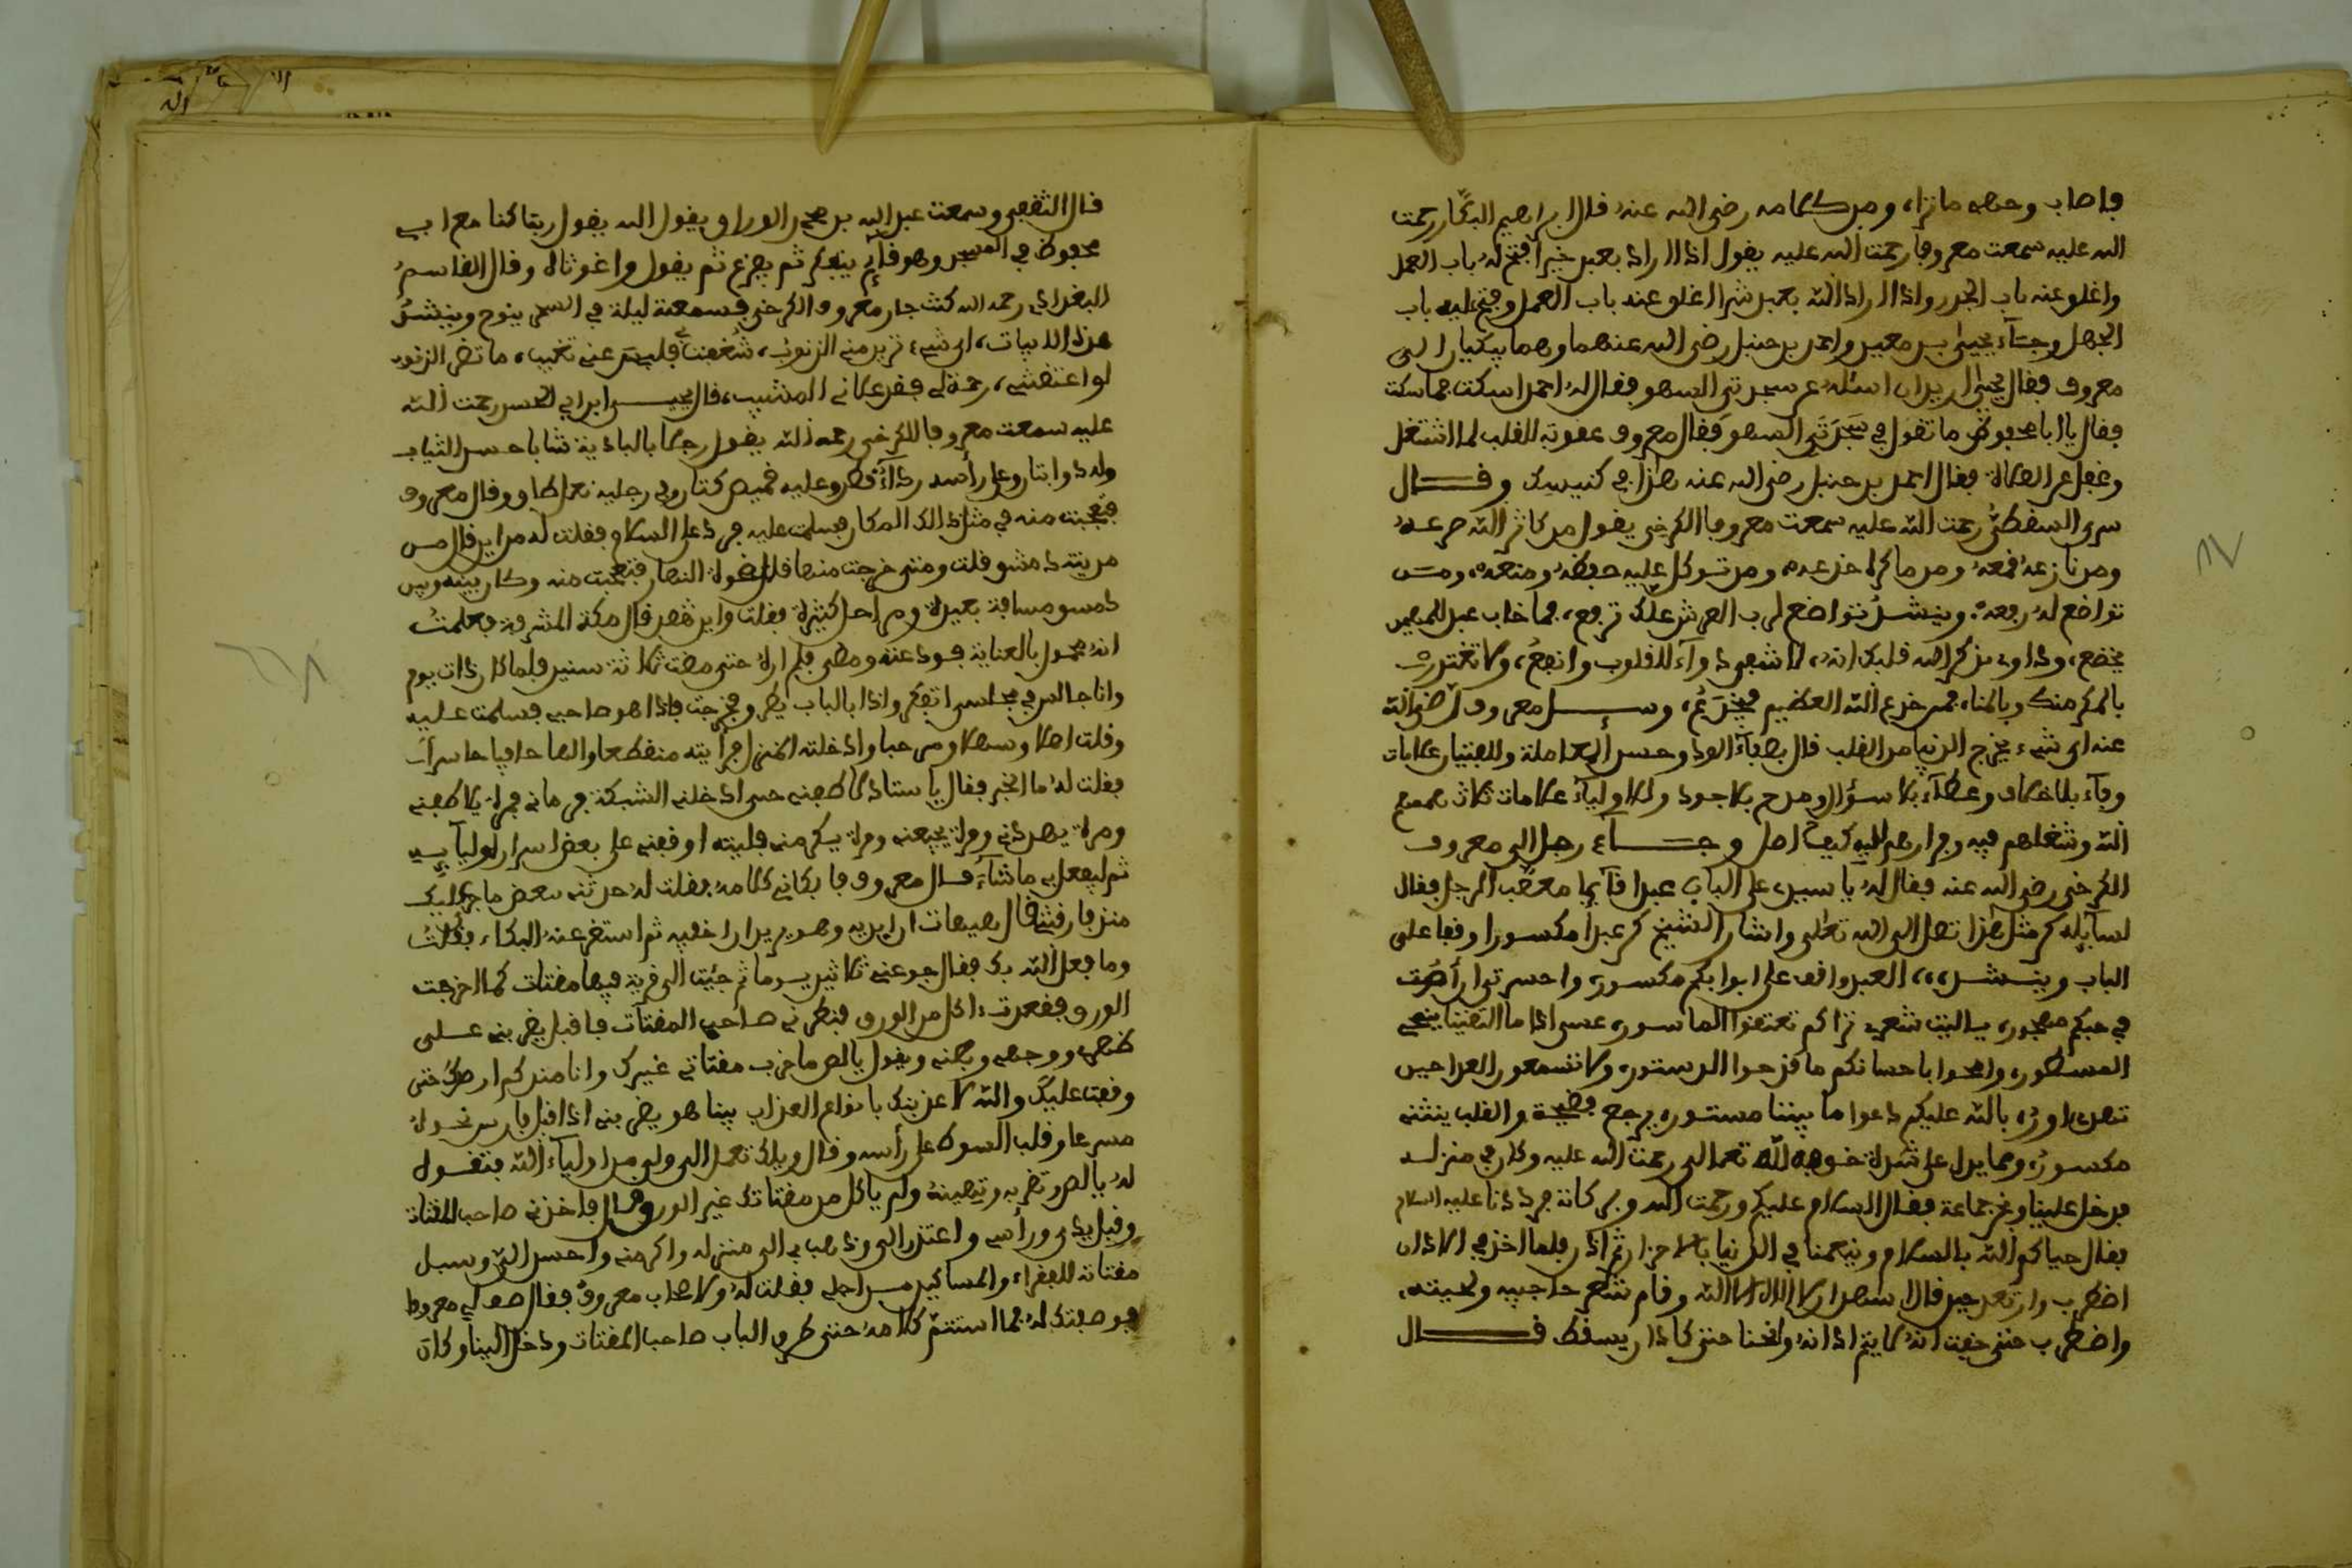 فاصاب وجهه ماترا، ومن كلامه رضي الله عنه قال ابراهيم البكار رحمت
الله عليه سمعت معروفا رحمت الله عليه يقول اذا اراد بعبد خيرا فتح له باب العمل
واغلق عنه باب الجدل واذا اراد الله بعبد شرا اغلق عنه باب العمل وفتح عليه باب
الجدل وجاء يحيى بن معين واحمد بن حنبل رضي الله عنهما وهما يكتبان الى
معروف فقال يحيى اريد ان اسئله عن سجدتي السهو فقال له احمد اسكت فما سكت
فقال يا ابا محفوظ ما تقول في سجدتي السهو فقال معروف عقوبة للقلب لما اشتغل
وغفل عن الصلاة فقال احمد بن حنبل رضي الله عنه هذا في كنيسك وقال
سري السقطي رحمت الله عليه سمعت معروفا الكرخي يقول من كاثر الله صرعه
ومن نازعه قمعه ومن ماكره خدعه ومن توكل عليه حفظه ومنعه ومن
تواضع له رفعه وينشد تواضع لرب العرش علك ترفع، فما خاب عبد للمهيمن
يخضع، وداو بذكر الله قلبك انه، لاشفى دواء للقلوب وانفع، ولا تغترر
بالمكر منك وبالمنا، فمن خدع الله العظيم فيخدع، وسئل معروف رضي الله
عنه اي شيء يخرج الدنيا من القلب قال بصفاء الود وحسن المعاملة وللفتيان علامات
وفاء بلا خلاف وعطاء بلا سؤال ومدح بلا جود وللاولياء علامات ثلاث همهم
الله وشغلهم فيه وفرارهم اليه وجاء رجل الى معروف
الكرخي رضي الله عنه فقال له يا سيدي على الباب عبدا قائما الرجل فقال
لسائله كم مثل هذا تصل الى الله تعالى واشار الشيخ كم عبدا مكسورا وقفا على
الباب وينشد، العبد واقف على ابوابكم مكسور، واحسرتي ان
في حبكم مهجور، يا ليت شعري تراكم تعتقوا الماسور، عسى اذا ما التقينا ينمحي
المسطور، وامحوا باحسانكم ما قد حوا الدستور، ولا تسمعون العدا حين
بالله عليكم دعوا ما بيننا مستور، يرجع والقلب ينثني
مكسور، ومما يدل على شدة خوفه لله تعالى رحمت الله عليه وكان في منزله
فدخل علينا ونحن جماعة فقال السلام عليكم ورحمت الله وبركاته فرددنا عليه السلام
فقال حياكم الله بالسلام ونعمنا في الدنيا بالاحزان ثم اذن فلما اخذ في الاذان
اضطرب وارتعد حين قال اشهد ان لا اله الا الله وقام شعر حاجبيه ولحيته،
واضطرب حتى خفت انه لا يتم اذانه وانحنا حتى كاد ان يسقط قال
قال الثقفي وسمعت عبد الله بن محمد الوراق يقول الله يقول ربما كنا مع ابي
محفوظ في المسجد وهو قائم يتفكر ثم يفزع ثم يقول واغوثاه وقال القاسم
البغدادي رحمه الله كنت جار معروف الكرخي فسمعته ليلة في السحر ينوح وينشد
هذه الابيات، اي شيء تريد مني الذنوب، شغفت بي فليس عني تغيب، ما تضر الذنوب
لو اعتقتني، رحمة لي فقد علاني المشيب، قال يحيى ابن ابي الحسن رحمت الله
عليه سمعت معروفا الكرخي رحمه الله يقول رجلا بالبادية شابا حسن الثياب
وله ذوابتان وعلى رأسه رداء قطن وعليه قميص كتان وفي رجليه نعل طاق وقال معروف
فعجبت منه في مثل ذالك المكان فسلمت عليه فرد علي السلام فقلت له من اين قال من
مدينة دمشق قلت ومتى خرجت منها قال ضحوة النهار فتعجبت منه وكان بينه وبين
دمشق مسافة بعيدة ومراحل كثيرة فقلت واين تقصد قال مكة المشرفة فعلمت
انه محمول بالعناية فودعته ومضى فلم اره حتى مضت ثلاثة سنين فلما كان ذات يوم
وانا جالس في مجلسي اتفكر واذا بالباب يطرق فخرجت فاذا هو صاحبي فسلمت عليه
وقلت اهلا وسهلا ومرحبا وادخلته المنزل فرأيته منقطعا والها حافيا حاسرا
فقلت له ما الخبر فقال يا ستاذ لاطفني حتى ادخلني الشبكة فرماني فمرة يلاطفني
ومرة يهددني ومرة يجيعني ومرة يكرمني فليته اوقفني على بعض اسرار اوليائه
ثم ليفعل بي ما شاء قال معروف فابكاني كلامه فقلت له حدثني ببعض ما جرى عليك
منذ فارقتني قال هيهات ان ابديه وهو يريد ان اخفيه ثم استفرغه البكاء فقلت
وما فعل الله بك فقال جوعني ثلاثين يوما ثم جئت الى قرية فيها مقتات كما اخرجت
الورق فقعدت اكل من الورق فنظرني صاحب المقتات فاقبل يضربني على
ظهري ووجهي وبطني ويقول يا لص ما خرب مقتاتي غيرك وانا منذ كم ارصدك حتى
وقعت عليك والله لاعذبنك بانواع العذاب بينا هو يضربني اذ اقبل فارس نحوه
مسرعا وقلب السوط على رأسه وقال ويلك تعمد الى ولي من اولياء الله فتقول
له يا لص وتضربه وتهينه ولم ياكل من مقتاتك غير الورق قال فاخذني صاحب المقتات
وقبل يدي ورأسي واعتذر الي وذهب بي الى منزله واكرمني واحسن الي وسبل
مقتاته للفقراء والمساكين من اجلي فقلت له ولاصحاب معروف فقال صف لي معروفا
فوصفتك له فما استتم كلامه حتى طرق الباب صاحب المقتات ودخل الينا وكان